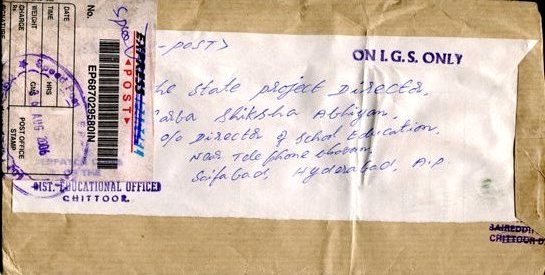 <-POST>
ON I.G.S. ONLY
he State project Director,
arba Shiksha Abhiyan,
o/o Director of School Education,
Near Telephone bhavan,
Saifabad, Hyderabad, A.P
DATE
TIME HRS
WEIGHT GMS
CHARGE Rs
POST OFFICE STAMP
AUG 2006
No.
Speed
EP687029580IN
EXPRESS
POST
DIST. EDUCATIONAL OFFICER
CHITTOOR.
CHITTOOR D